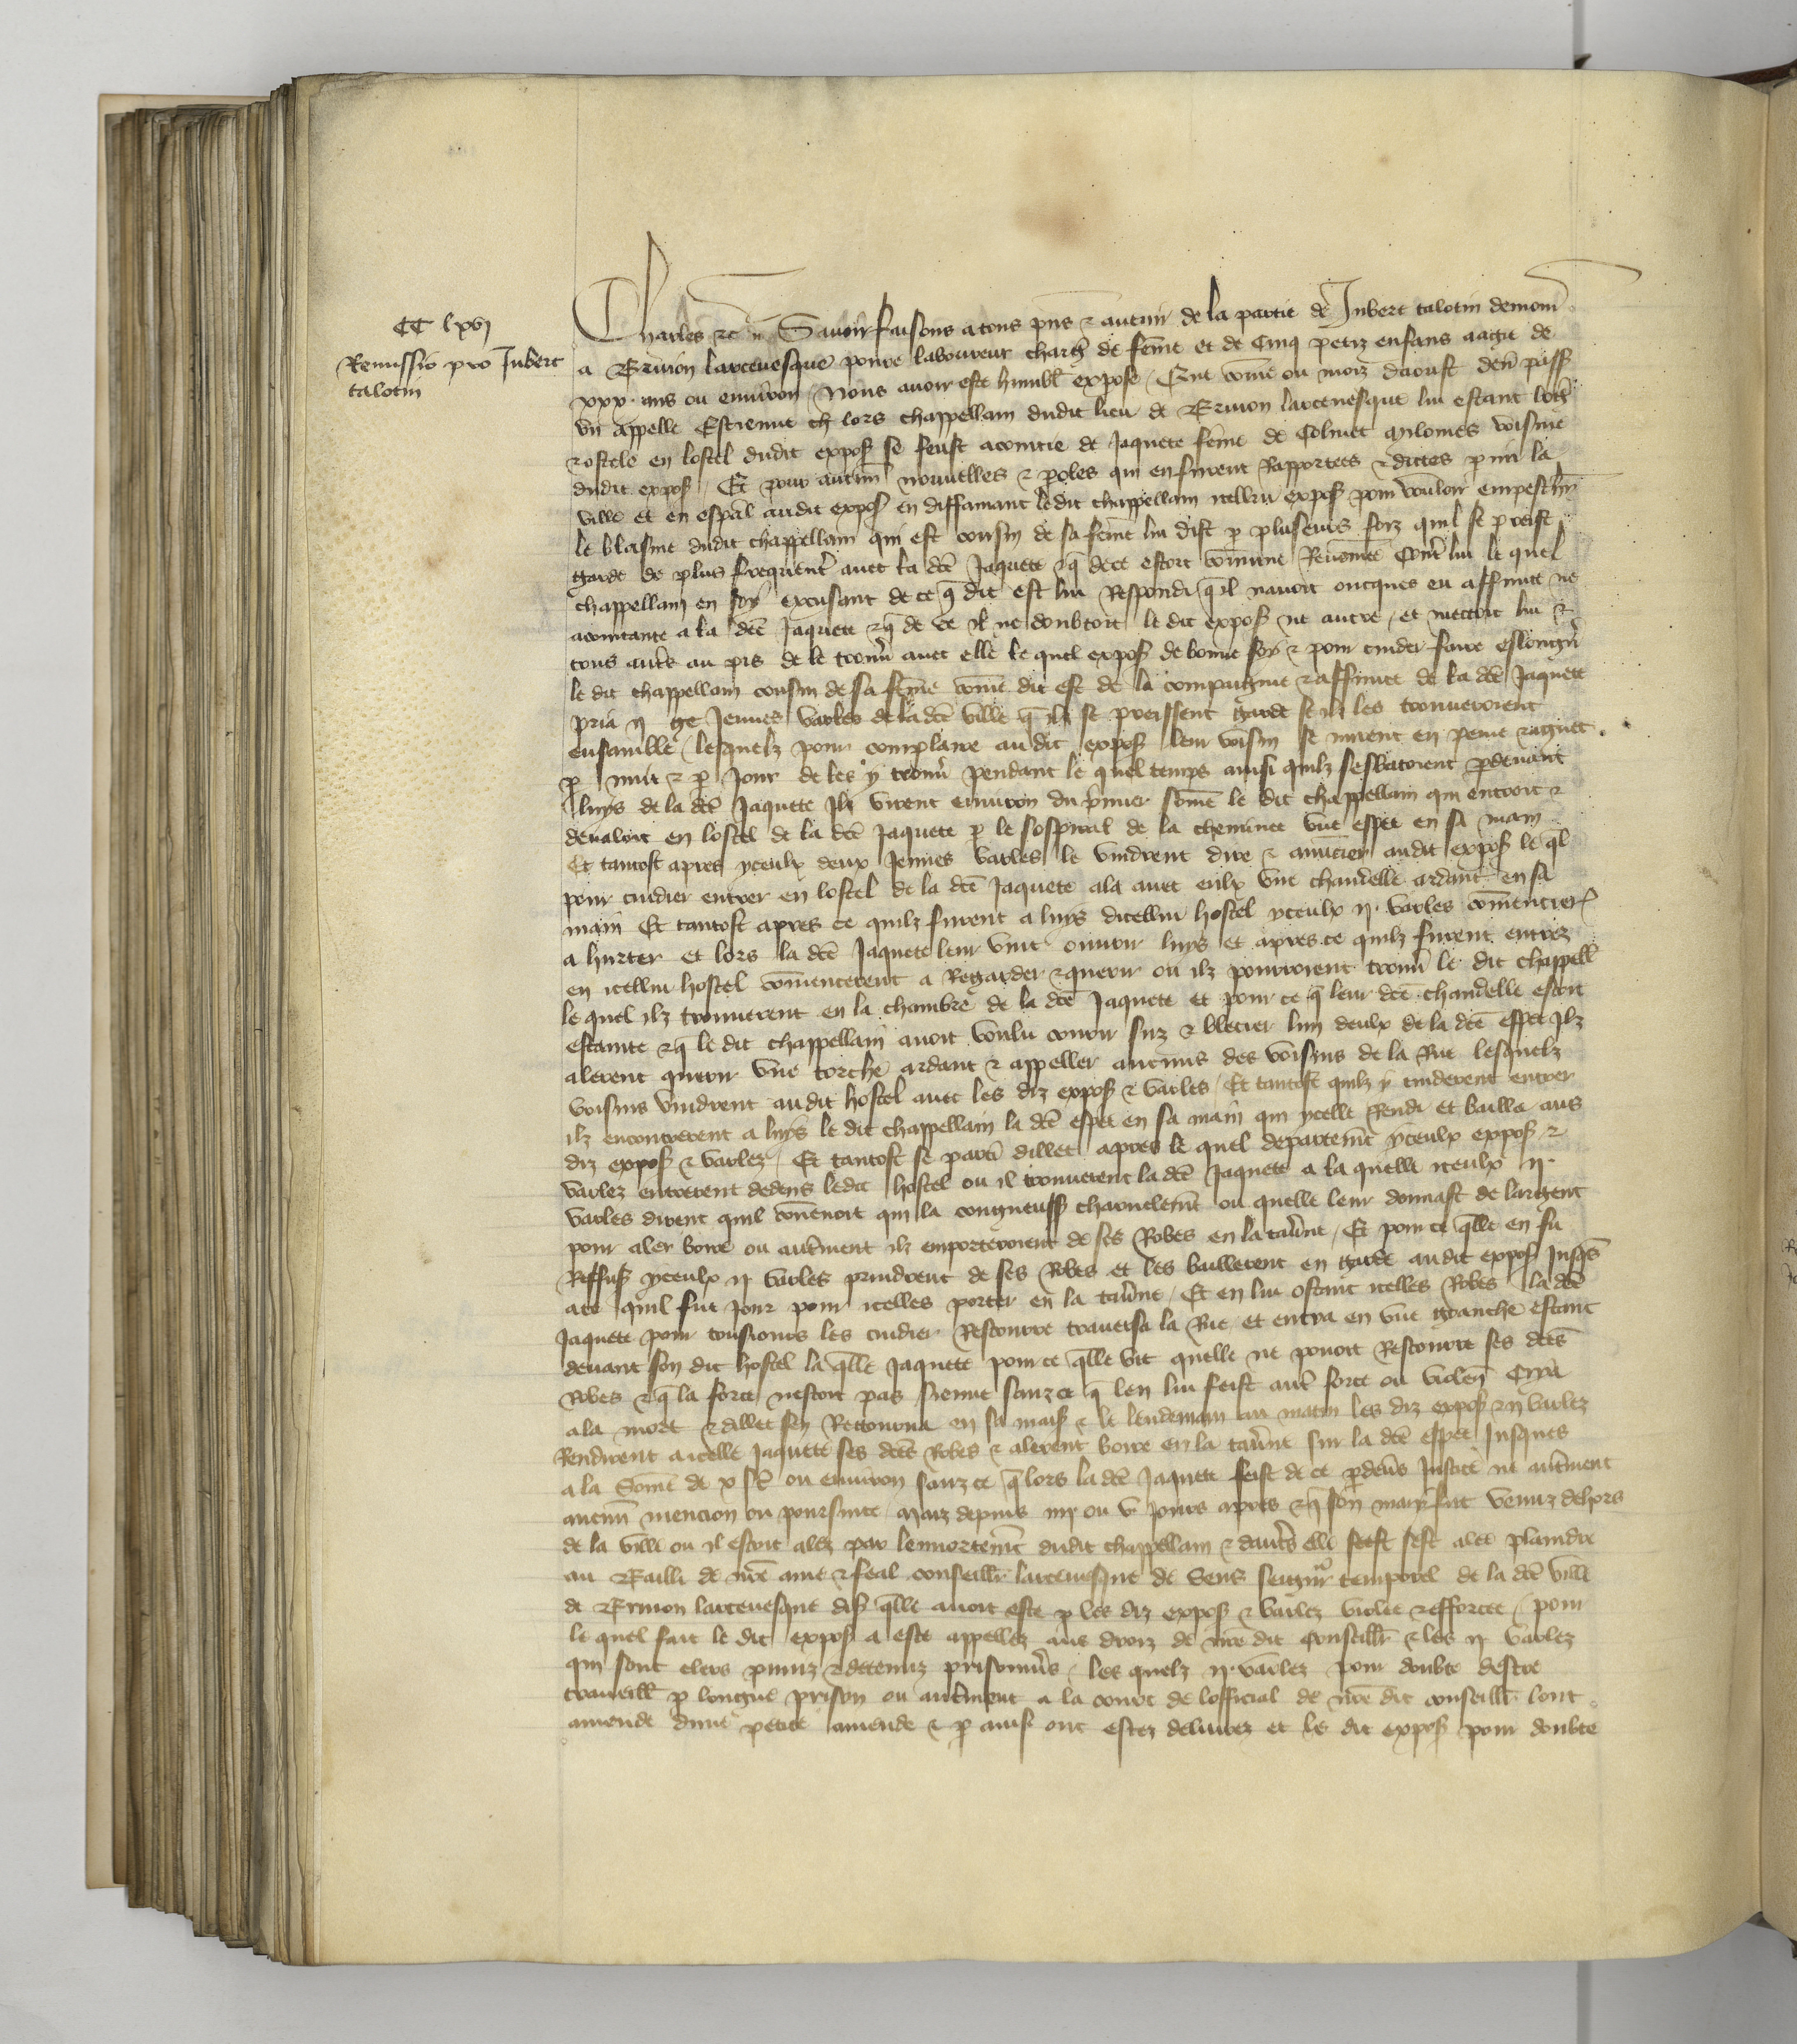 CC lxvj
Remissio pro Jubert
talotin
Charles etc Savoir faisons a tous pns & avenir de la partie de Jubert talotin demour
a Brinon larcevesque povre laboureur chargie de feme et de Cinq petiz enfans aagie de
xxx ans ou environ Nous avoir este humbl expose Que come ou mois daoust derr passe
un appelle Estienne lors chappellain dudit lieu de Brinon larcevesque lui estant logie
& ostele en lostel dudit expos se feust acointie de Jaquete feme de Colinet voisine
dudit expos Et pour aucunes nouvelles & poles qui en furent Rapportees & dictes pmi la
ville et en espal audit expos en diffamant ledit chappellain icellui expos pour vouloir empescher
le blasme dudit chappellain qui est cousin de sa feme lui dist p plusieurs foiz quil se preist
garde de plus frequenter avec la dce Jaquete & q dece estoit comune Renomee Contre lui le quel
chappellain en soy excusant de ce q dit est lui Respondi q il navoit oncques eu affinite ne
acointance a la dce Jaquete & q de ce il ne doubtoit le dit expos ne autre et mettoit lui &
tous autres au pis de le trouver avec elle le quel expos de bonne foy & pour cuider faire eslongner
le dit chappellain cousin de sa feme come dit est de la compaignie & affinite de la dce Jaquete
pria ij Jeunes varles de la dce ville q ilz se preissent garde se ilz les trouveroient
ensamble lesquelz pour complaire au dit expos leur voisin se mirent en peine & aguet
p nuit & p Jour de les y trouver pendant le quel temps ainsi quilz sesbatoient pdevant
luys de la dce Jaquete Ilz virent environ du pmier some le dit chappellain qui entroit &
devaloit en lostel de la dce Jaquete p le sospiral de la cheminee une espee en sa main
Et tantost apres yceulx deux Jeunes varles le vindrent dire & anuncier audit expos le ql
pour cuidier entrer en lostel de la dce Jaquete ala avec eulx une chandelle ardant en sa
main Et tantost apres ce quilz furent a luys dicellui hostel yceulx ij varles comencier
a hurter et lors la dce Jaquete leur vint ouvrir luys et apres ce quilz furent entrez
en icellui hostel comencerent a Regarder & querir ou ilz pourroient trouver le dit chappell
le quel ilz trouverent en la chambre de la dce Jaquete et pour ce q leur dce chandelle estoit
estainte & q le dit chappellain avoit voulu courir suz & blecier lun deulx de la dce espee Ilz
alerent querir une torche ardant & appeller aucuns des voisins de la Rue lesquelz
voisins vindrent audit hostel avec les diz expos & varles Et tantost quilz y cuiderent entrer
ilz encontrerent a luys le dit chappellain la dce espee en sa main qui ycelle Rendi et bailla aus
diz expos & varlez Et tantost se parti dillec apres le quel departemt yceulx expos &
varlez entrerent dedens ledit hostel ou il trouverent la dce Jaquete a la quelle iceulx ij
varles dirent quil convenoit qui la congneuss charnelemt ou quelle leur donnast de largent
pour aler boire ou autrment ilz emporteroient de ses Robes en la taverne Et pour ce qlle en fu
Reffus yceulx ij varles prindrent de ses Robes et les baillerent en garde audit expos Jusqs
ace quil fut Jour pour icelles porter en la taverne Et en lui ostant icelles Robes la dce
Jaquete pour tousiours les cuidier Rescourre traversa la Rue et entra en une granche estant
devant son dit hostel la qlle Jaquete pour ce qlle vit quelle ne povoit Rescourre ses dces
Robes & q la force nestoit pas sienne sanz ce q len lui feist autre force ou violen Cria
ala mort & dillec sen Retourna en sa mais & le lendemain au matin les diz expos & ij varlez
Rendirent a icelle Jaquete ses dces Robes & alerent boire en la taverne sur la dce espee Jusques
a la Some de x s ou environ sanz ce q lors la dce Jaquete feist de ce pdevs Justice ne autrment
aucun mencion ou poursuite Maiz depuis iiij ou v Jours apres & q son mary fut venuz dehors
de la ville ou il estoit alez par lennortemt dudit chappellain & dautrs elle sest alee plaindre
au Bailli de nre ame & feal conseillr larcevesque de Sens seigneur temporel de la dce ville
de Brinon larcevesque dis qlle avoit este p les diz expos & varlez violee & efforcee pour
le quel fait le dit expos a este appellez aus droiz de nre dit Conseillr & les ij varlez
qui sont clers pris & detenuz prisonnrs les quelz ij varlez pour doubte destre
traveill p longue prison ou autrment a la court de lofficial de nre dit conseillr lont
amende dune petite amende & p ainsi ont estez delivrez et le dit expos pour doubte